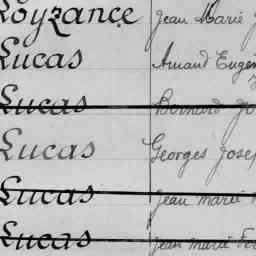 Loyzance Jean Marie J
Lucas Amand Eugèn
Lucas Bernard Jo
Lucas Georges Josep
Lucas Jean Marie
Lucas Jean Marie Fer